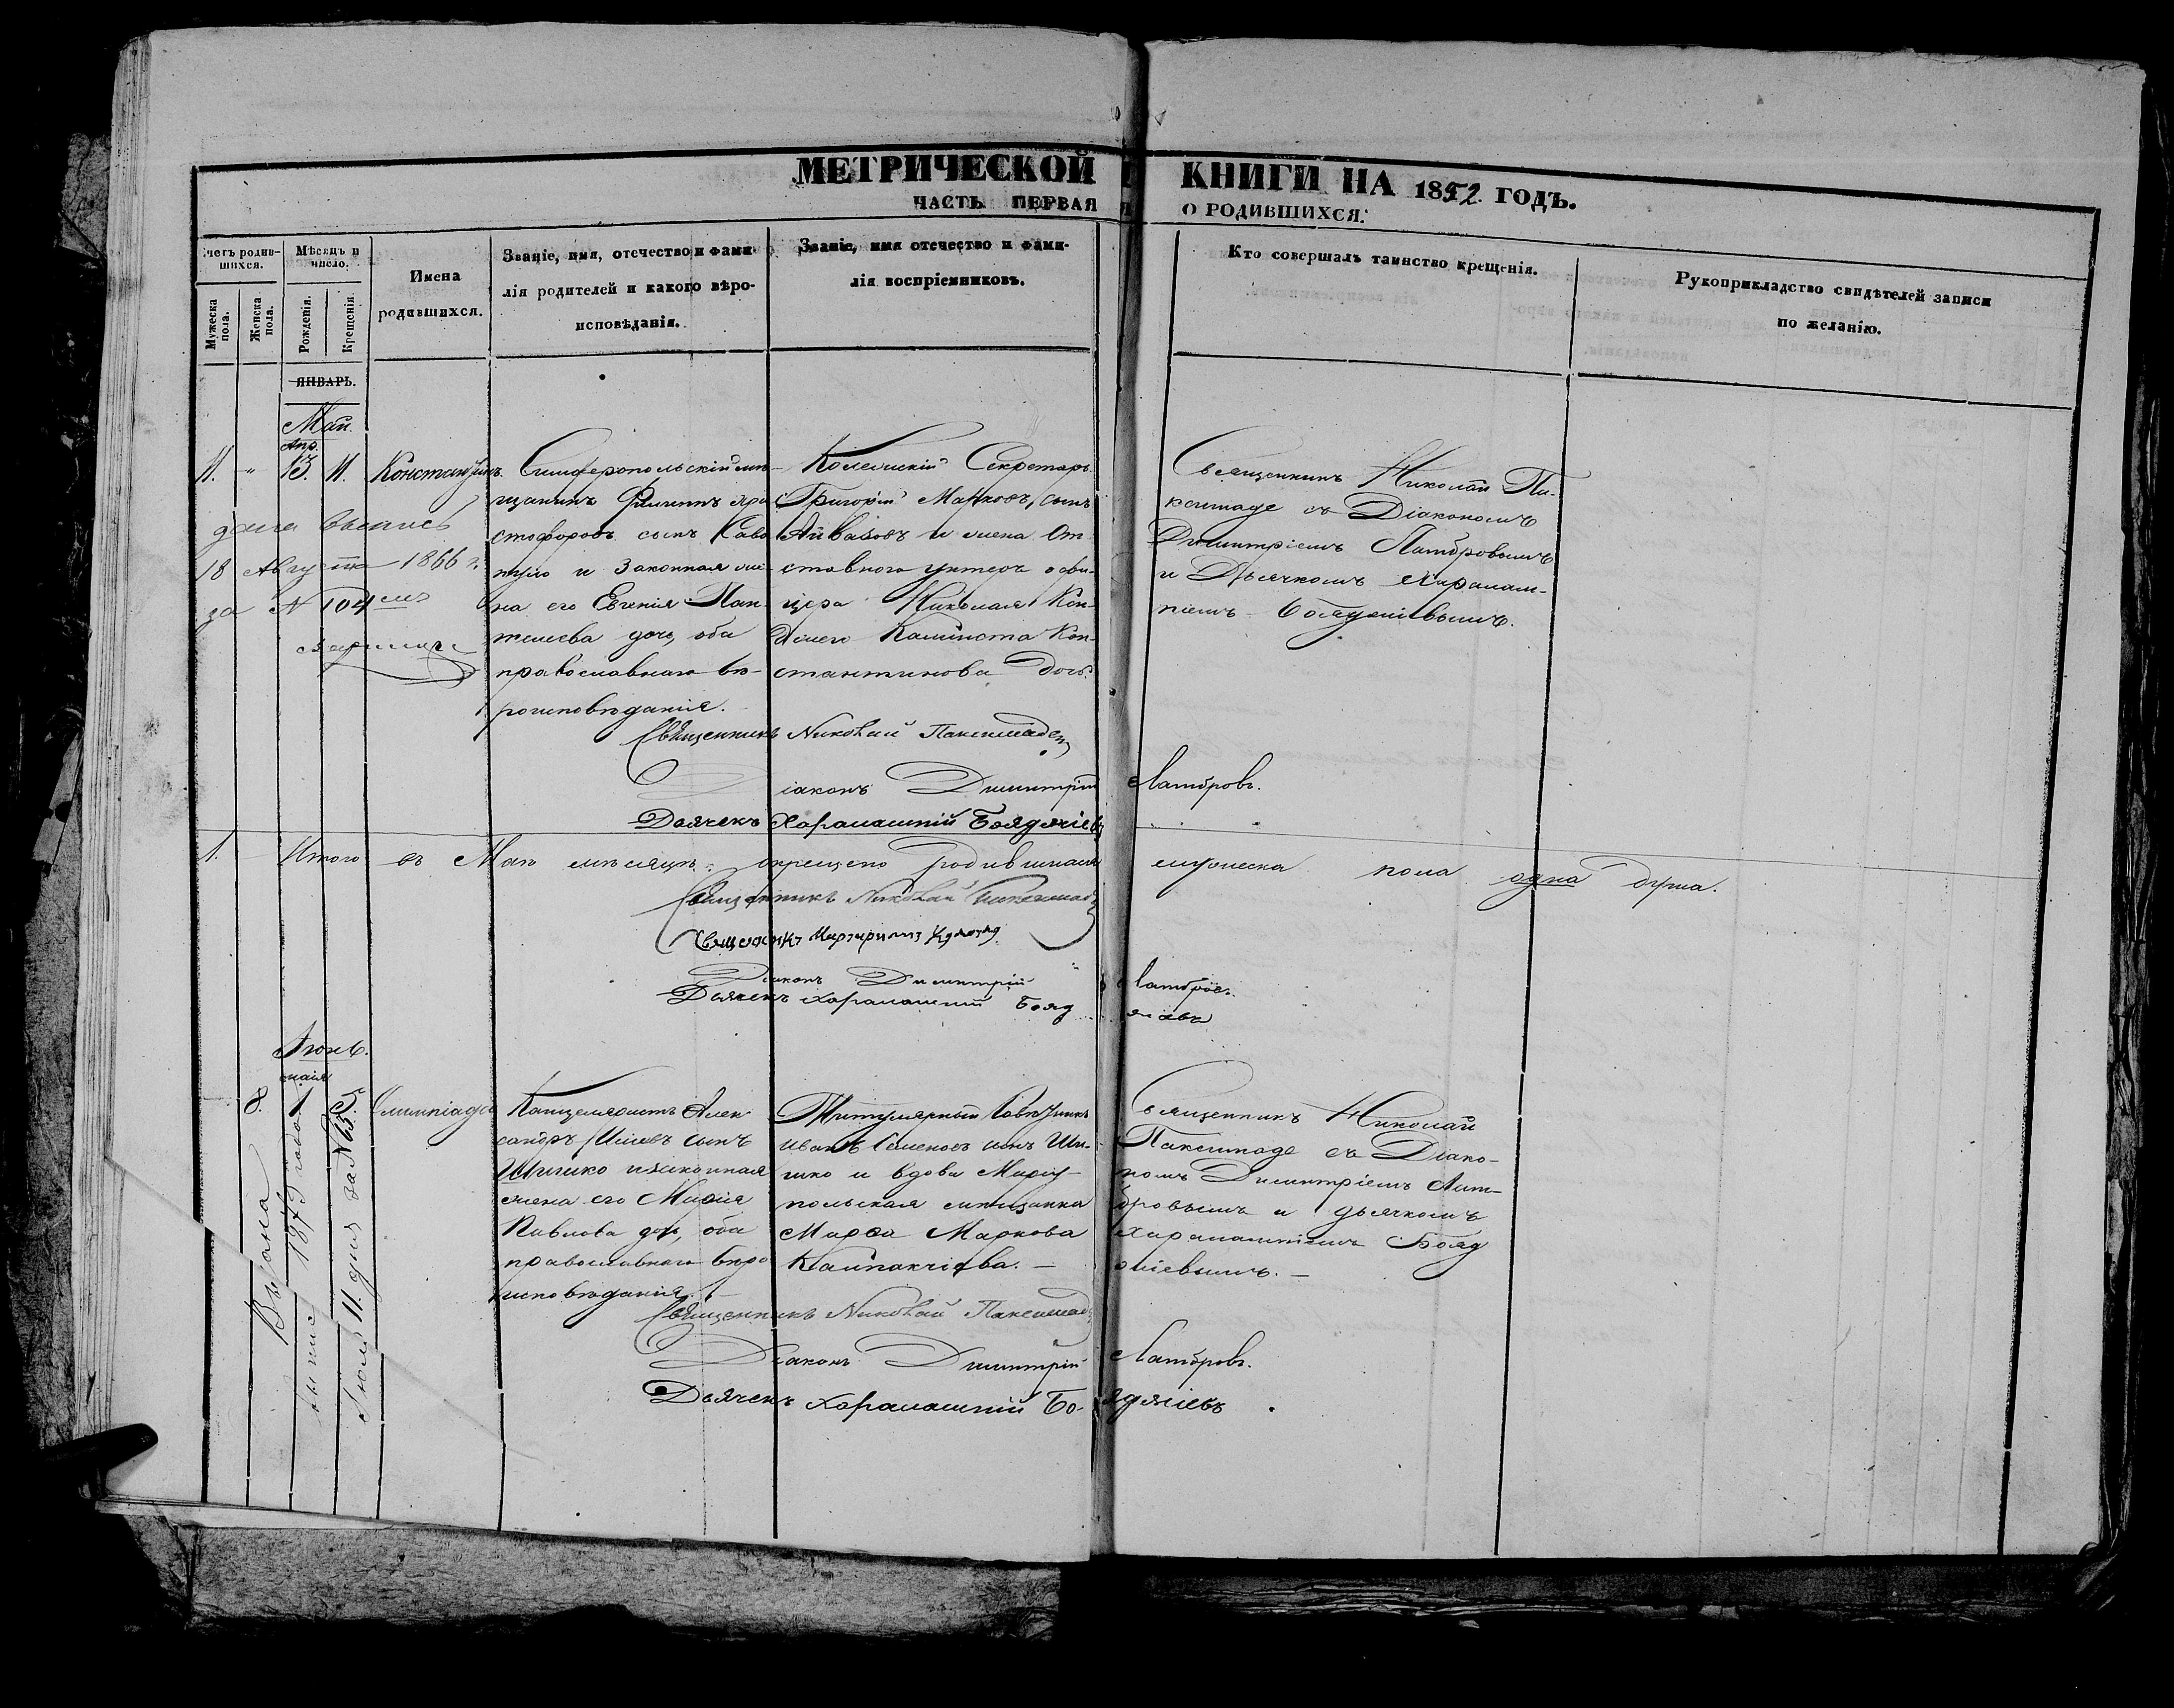 МЕТРИЧЕСКОЙ КНИГИ НА 1852 ГОДЪ.
ЧАСТЬ ПЕРВАЯ О РОДИВШИХСЯ.
четъ родив-
шихся.
Мужеска
пола.
Женска
пола.
Мѣсяцъ и
число.
Рожденія.
Крещенія.
Имена
родившихся.
Званіе, имя, отечество и фами-
лія родителей и какого вѣро-
исповѣданія.
Званіе, имя отечество и фами-
лія воспріемниковъ.
Кто совершалъ таинство крещенія.
Рукоприкладство свидѣтелей записи
по желанію.
ЯНВАРЬ.
Май
Апр.
11. " 13. 11. Константинъ.
Симферопольскій мѣ-
щанинъ Филиппъ Хри
стофоровъ сынъ Саво
пуло и законная же-
на его Евгенія Пан-
желиева дочь, оба
православнаго вѣ-
роисповѣданія.
Колежскій Секретарь
Григорій Марковъ, сынъ
Айвазовъ и жена От-
ставнаго унтеръ офи-
цера Николая Кон-
Калиіиста Кон-
стантинова дочь.
Священникъ Николай Па-
ксимаде съ Діакономъ
Димитріемъ Латбровымъ
и Дьячкомъ Харалам-
піемъ Бояджіевымъ.
дана выпись
18 Августа 1866 г.
за N 104
Священникъ Николай Паксимаде
Діаконъ Димитрій Латбровъ.
Дьячекъ Харалампій Бояджіевъ
1. Итого въ Маѣ мѣсяцѣ окрещено родившихся мужеска пола одна душа.
Священникъ Николай Паксимаде
Священникъ
Діаконъ Димитрій Латбровъ.
Дьячекъ Харалампій Бояджіевъ
Іюнь.
маія
8. 1 5. Олимпіада
Канцеляристъ Алек
сандръ Ильевъ сынъ
Шишко и законная
жена его Марія
Павлова дочь, оба
православнаго вѣро
исповѣданія.
Титулярный Совѣтникъ
Иванъ Семеновъ сынъ Ши-
шко и вдова Маріу-
польская мѣщанка
Марѳа Маркова
Калпакчіева.
Священникъ Николай
Паксимаде съ Діако-
номъ Димитріемъ Лат-
бровымъ и дьячкомъ
Харалампіемъ Бояд
жіевымъ.
Выдана
выпись 1879 года
Іюля 11. дня за N 65.
Священникъ Николай Паксимаде
Діаконъ Димитрій Латбровъ.
Дьячекъ Харалампій Бояджіевъ